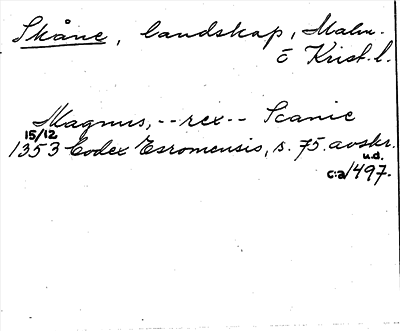 Skåne, landskap, Malm.
o Krist. l.
Magnus, -- rex -- Scanie
15/12
1353 Codex Esromensis, s. 75. avskr.
u.d.
c:a 1497.